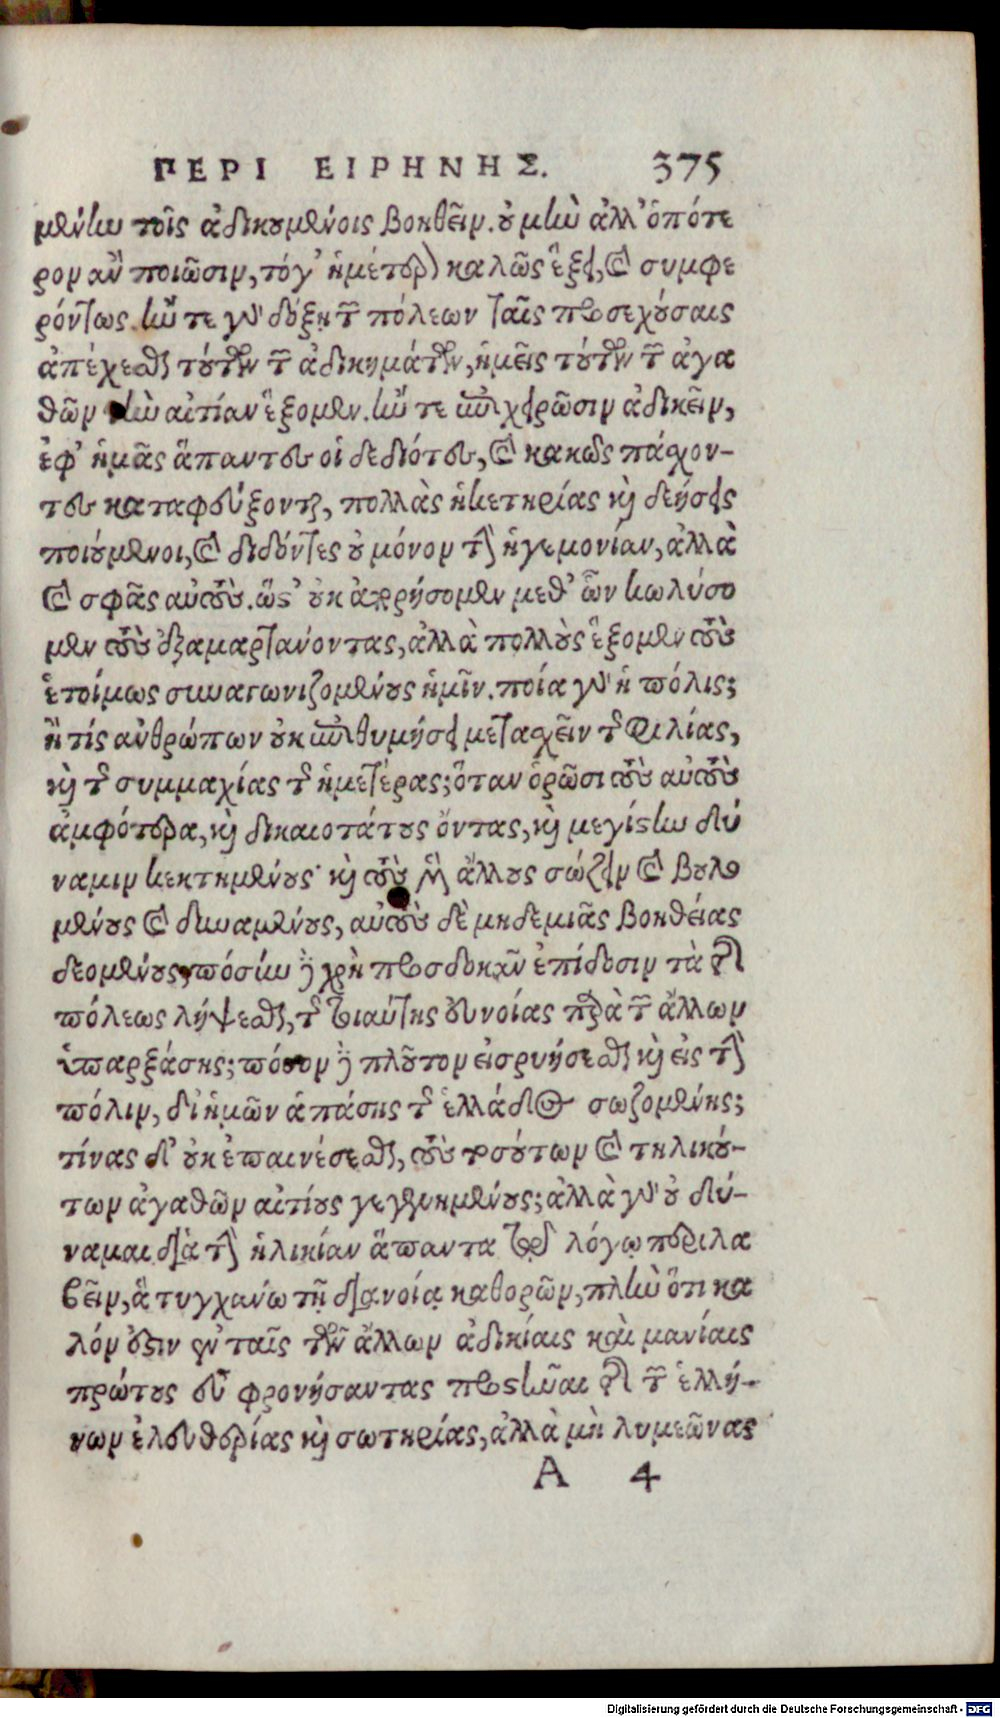 ΠΕΡΙ ΕΙΡΗΝΗΣ. 375
μένην τοῖς ἀδικουμένοις βοηθεῖν. οὐ μὴν ἀλλ' ὁπότε
ρον ἂν ποιῶσιν, τόγ' ἡμέτερον καλῶς ἕξει, καὶ συμφε
ρόντως. ἤν τε γὰρ δόξῃ τῶν πόλεων ταῖς προεχούσαις
ἀπέχεσθαι τούτων τῶν ἀδικημάτων, ἡμεῖς τούτων τῶν ἀγα
θῶν τὴν αἰτίαν ἕξομεν. ἤν τε ἐπιχειρῶσιν ἀδικεῖν,
ἐφ' ἡμᾶς ἅπαντες οἱ δεδιότες, καὶ κακῶς πάσχον-
τες καταφεύξονται, πολλὰς ἱκετηρίας καὶ δεήσεις
ποιούμενοι, καὶ διδόντες οὐ μόνον τὴν ἡγεμονίαν, ἀλλὰ
καὶ σφᾶς αὐτούς. ὥστ' οὐκ ἀπορήσομεν μεθ' ὧν κωλύσο
μεν τοὺς ἐξαμαρτάνοντας, ἀλλὰ πολλοὺς ἕξομεν τοὺς
ἑτοίμως συναγωνιζομένους ἡμῖν. ποία γὰρ ἡ πόλις;
ἢ τίς ἀνθρώπων οὐκ ἐπιθυμήσει μετασχεῖν τῆς φιλίας,
καὶ τῆς συμμαχίας τῆς ἡμετέρας; ὅταν ὁρῶσι τοὺς αὐτοὺς
ἀμφότερα, καὶ δικαιοτάτους ὄντας, καὶ μεγίστην δύ
ναμιν κεκτημένους· καὶ τοὺς μὲν ἄλλους σώζειν καὶ βουλο
μένους καὶ δυναμένους, αὐτοὺς δὲ μηδεμιᾶς βοηθείας
δεομένους; πόσην δὲ χρὴ προσδοκᾶν ἐπίδοσιν τὰ τῆς
πόλεως λήψεσθαι, τῆς τοιαύτης εὐνοίας παρὰ τῶν ἄλλων
ὑπαρξάσης; πόσον δὲ πλοῦτον εἰσρυήσεσθαι καὶ εἰς τὴν
πόλιν, δι' ἡμῶν ἁπάσης τῆς ἑλλάδος σωζομένης;
τίνας δ' οὐκ ἐπαινέσεσθαι, τοὺς τοσούτων καὶ τηλικού-
των ἀγαθῶν αἰτίους γεγενημένους; ἀλλὰ γὰρ οὐ δύ-
ναμαι διὰ τὴν ἡλικίαν ἅπαντα τῷ λόγῳ περιλα
βεῖν, ἃ τυγχάνω τῇ διανοίᾳ καθορῶν, πλὴν ὅτι κα
λόν ἐστιν ἐν ταῖς τῶν ἄλλων ἀδικίαις καὶ μανίαις
πρώτους εὖ φρονήσαντας προστῆναι τῆς τῶν ἑλλή-
νων ἐλευθερίας καὶ σωτηρίας, ἀλλὰ μὴ λυμεῶνας
A 4
Digitalisierung gefördert durch die Deutsche Forschungsgemeinschaft - DFG